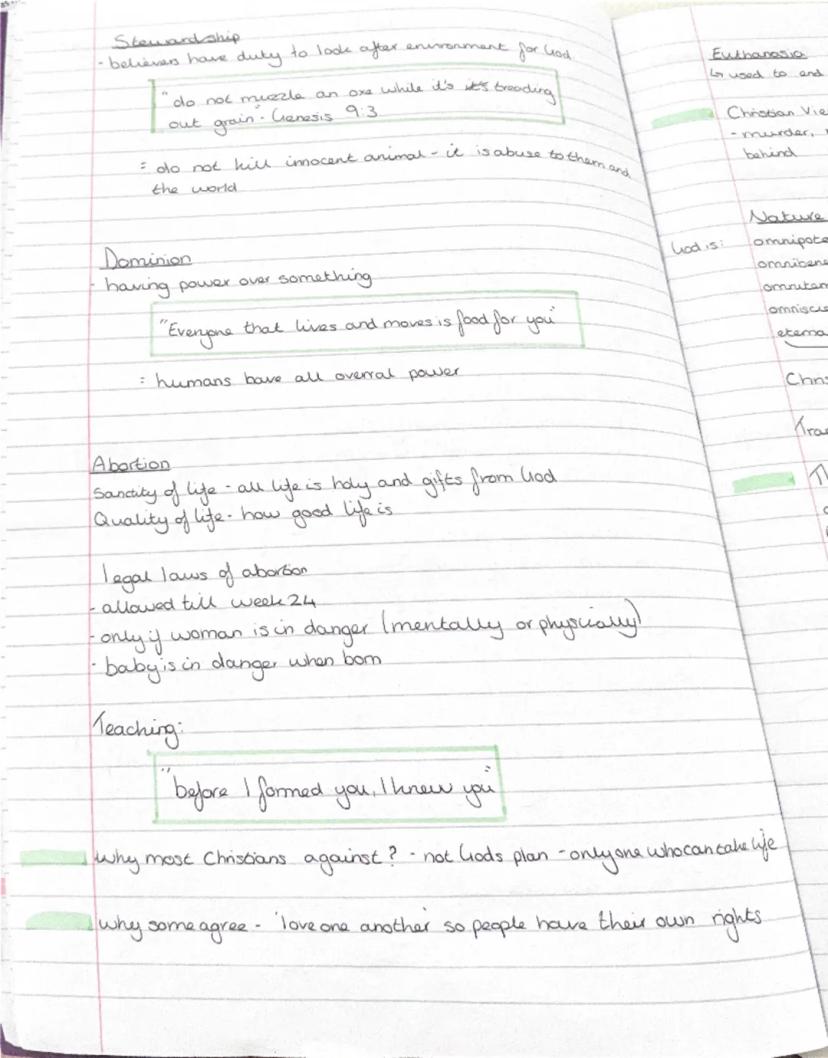 Stewardship
- believers have duty to look after environment for God
"do not muzzle an oxe while it's it's treading
out grain" - Genesis 9:3
= do not kill innocent animal - it is abuse to them and
the world
Dominion
- having power over something
"Everyone that lives and moves is food for you"
= humans have all overral power
Abortion
Sanctity of life - all life is holy and gifts from God
Quality of life - how good life is
legal laws of abortion
- allowed till week 24
- only if woman is in danger (mentally or physically)
- baby is in danger when born
Teaching:
"before I formed you, I knew you"
why most Christians against? - not Gods plan - only one who can take life
why some agree - 'love one another' so people have their own rights
Euthanasia
↳ used to end
Christian Vie
- murder,
behind
Nature
God is: omnipote
omnibene
omniscie
eterna
Chris
Tra